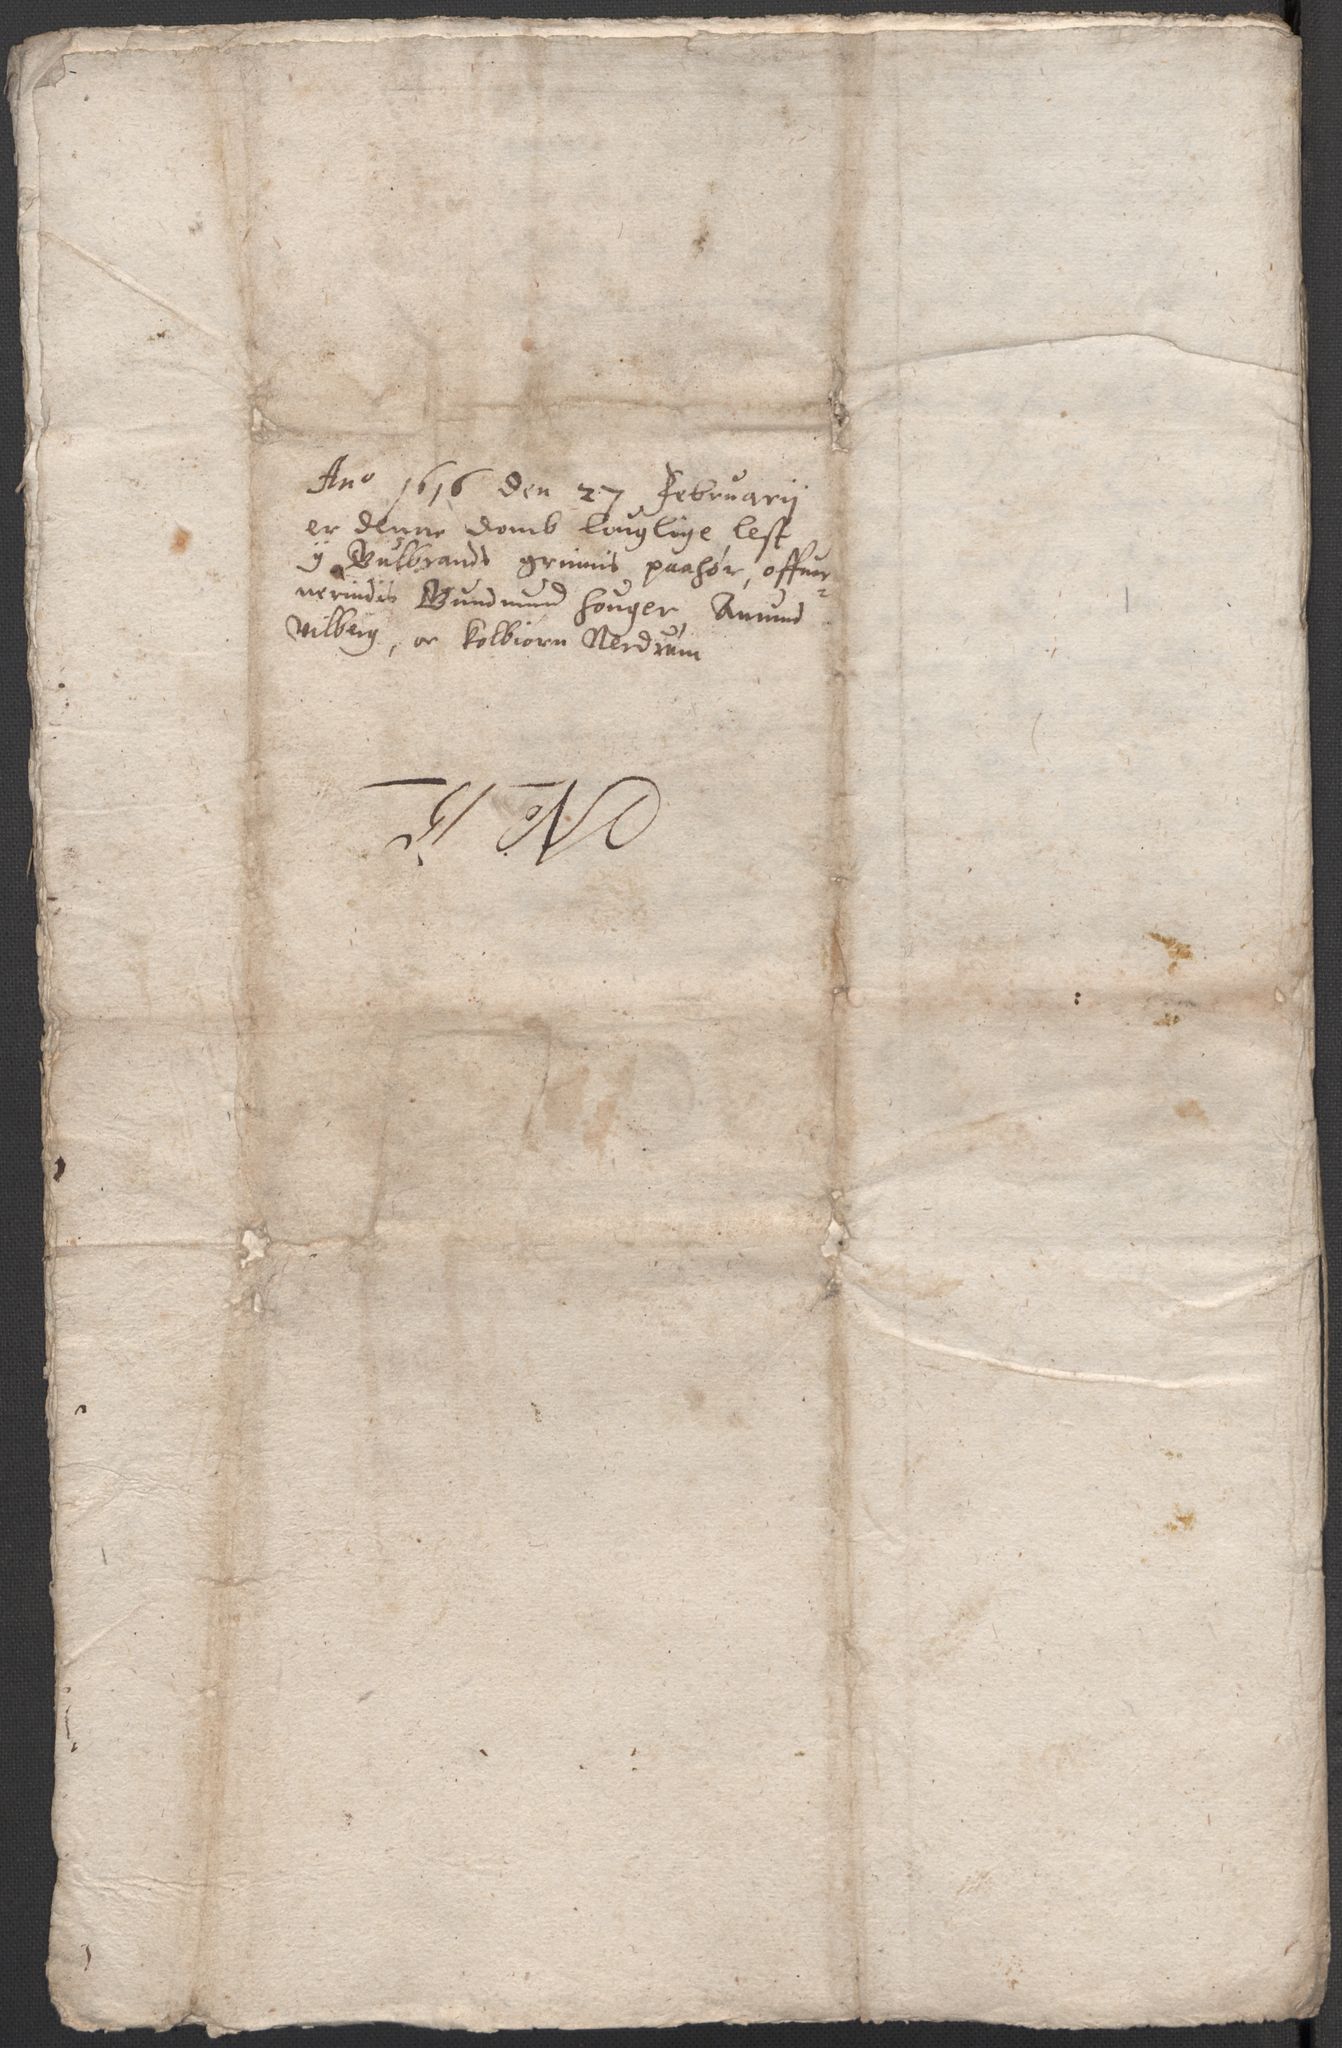 Ano 1616 den 27 Februarij
er denne domb louglige lest
ij Gulbrands grinnis paahør, offuer
nerindis Gundmund houger, Amund
Vilberg, oc Kolbiorn Nerdrum
No 15